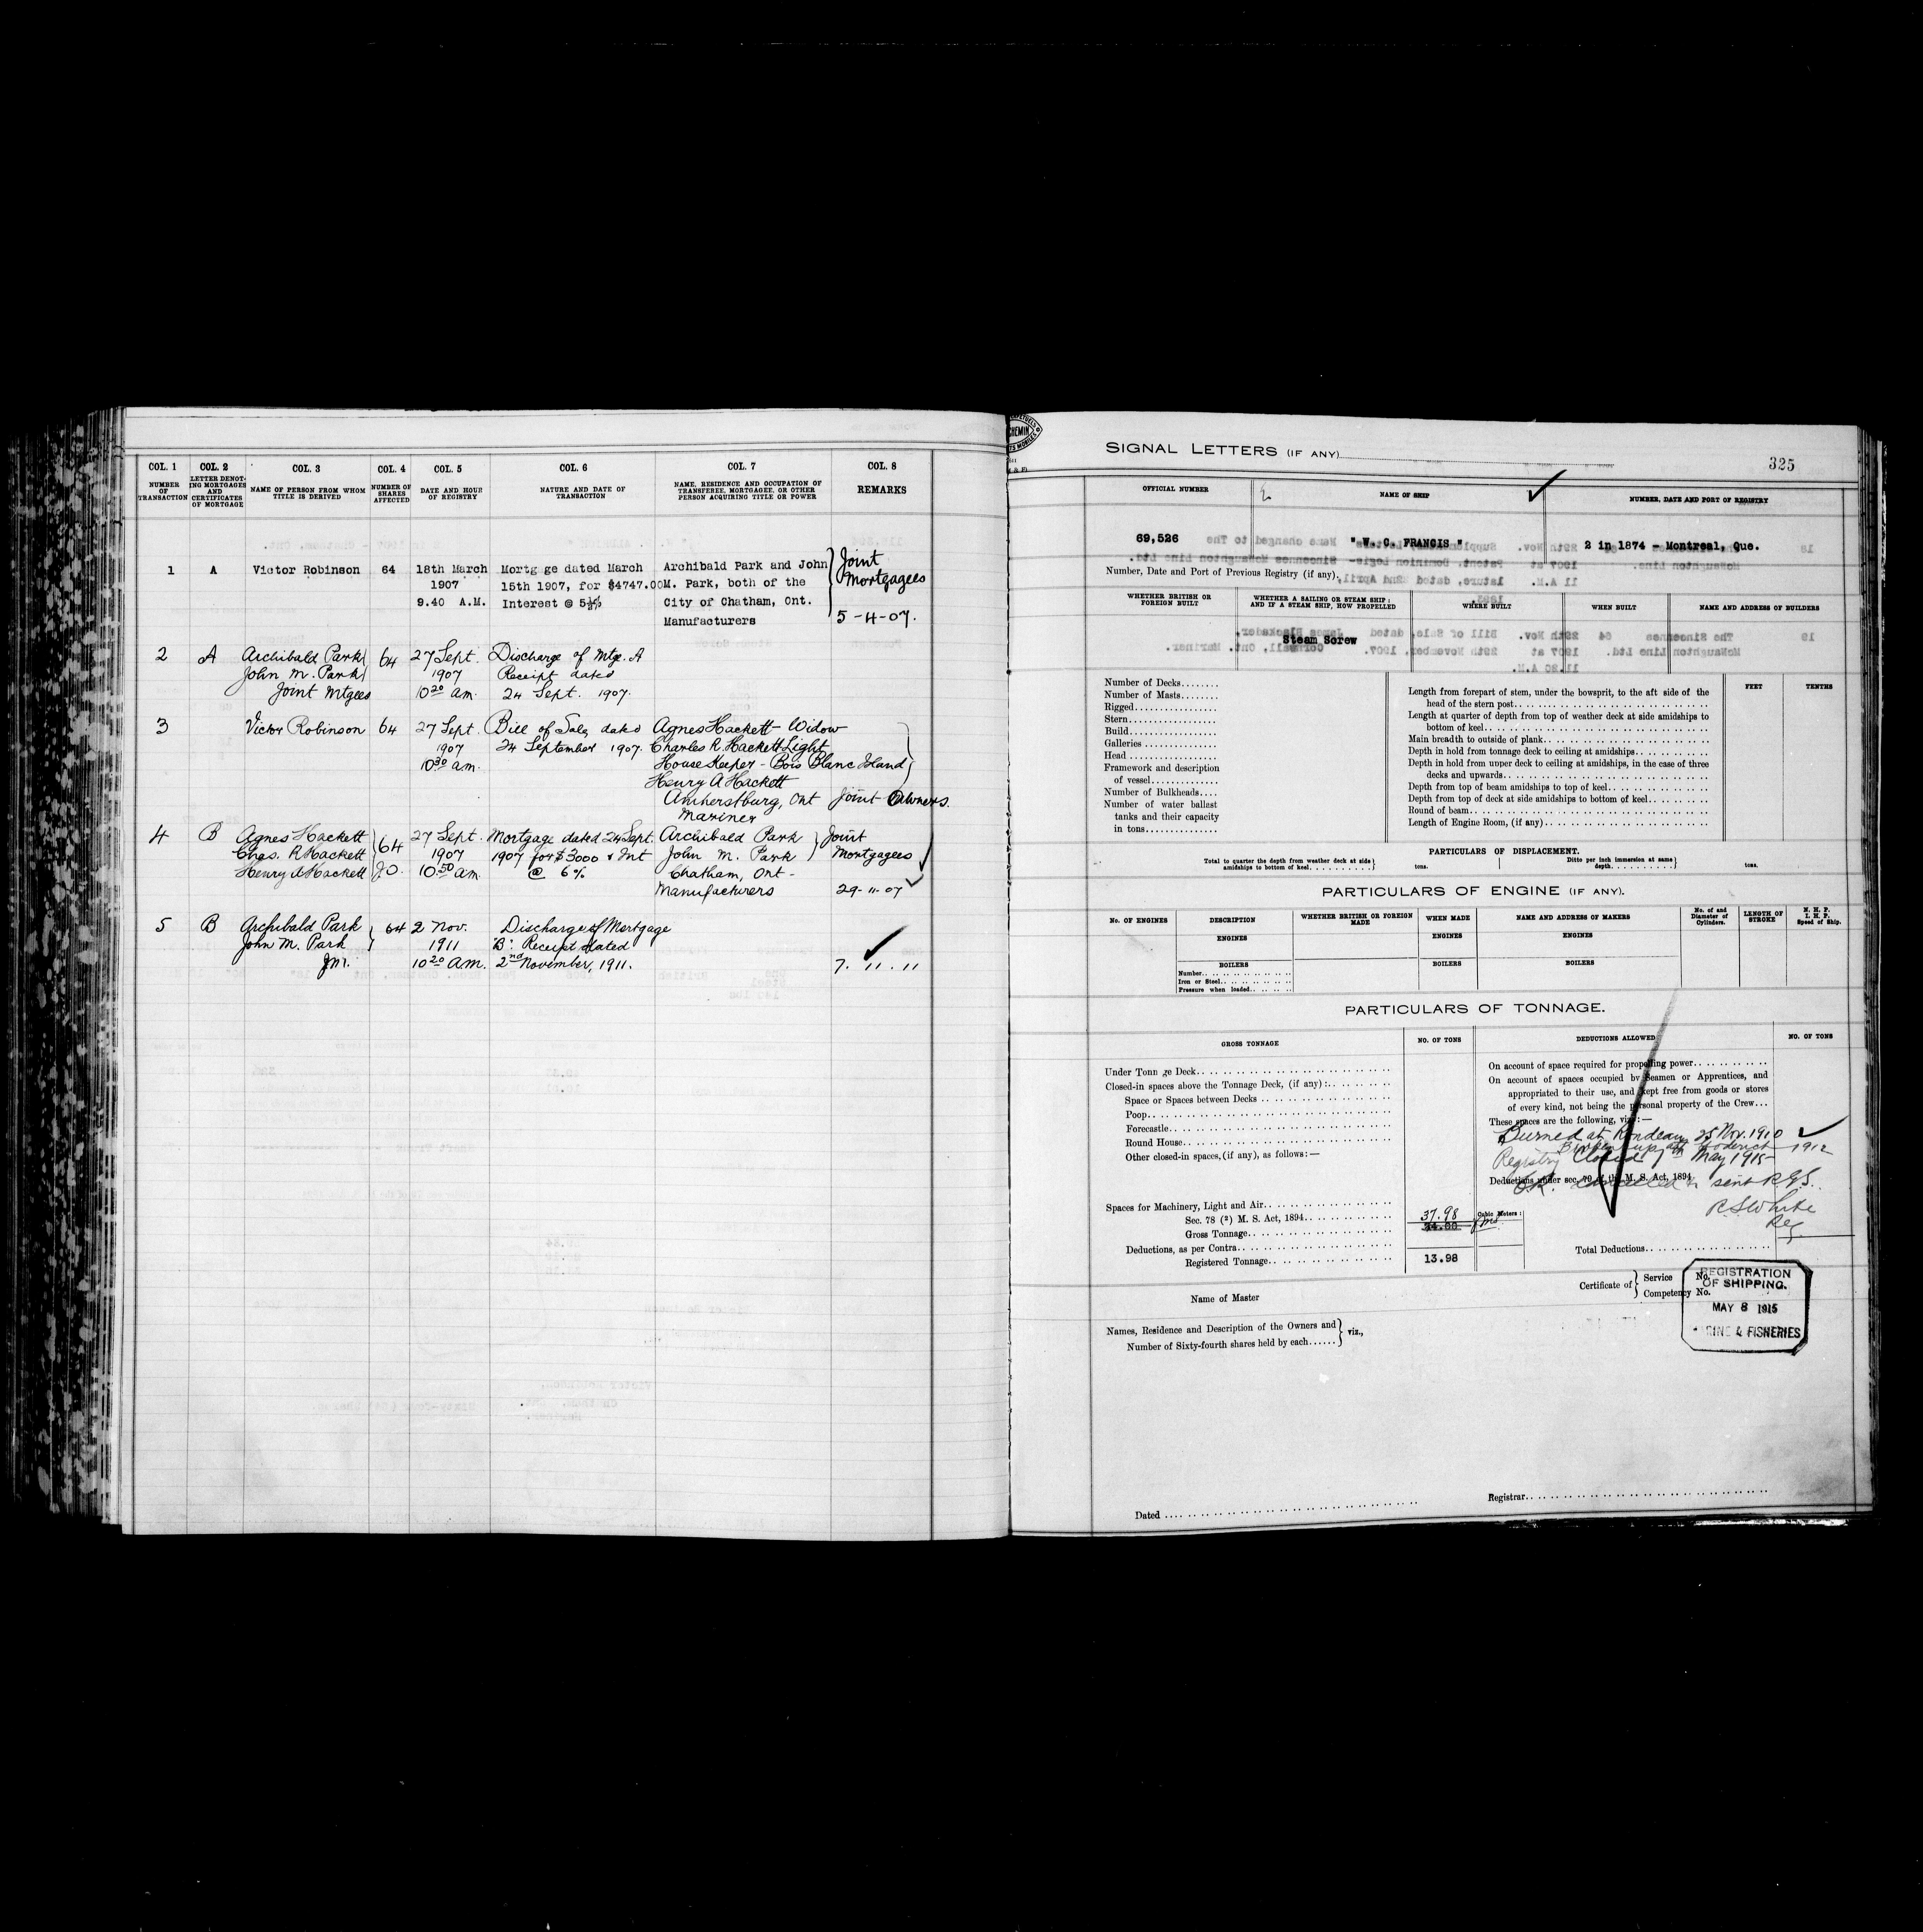 COL. 1
NUMBER OF TRANSACTION
COL. 2
LETTER DENOT-
ING MORTGAGES
AND
CERTIFICATES
OF MORTGAGE
COL. 3
NAME OF PERSON FROM WHOM
TITLE IS DERIVED
COL. 4
NUMBER OF
SHARES
AFFECTED
COL. 5
DATE AND HOUR
OF REGISTRY
COL. 6
NATURE AND DATE OF
TRANSACTION
COL. 7
NAME, RESIDENCE AND OCCUPATION OF
TRANSFEREE, MORTGAGEE, OR OTHER
PERSON ACQUIRING TITLE OR POWER
COL. 8
REMARKS
1 A Victor Robinson 64 18th March Mortg ge dated March Archibald Park and John Joint
1907 15th 1907, for $4747.00 M. Park, both of the Mortgagees
9.40 A.M. Interest @ 5½% City of Chatham, Ont.
Manufacturers 5-4-07.
2 A Archibald Park 64 27 Sept. Discharge of Mtge. A
John M. Park 1907 Receipt dated
Joint Mtgees 10 20 am. 24 Sept. 1907.
3 Victor Robinson 64 27 Sept. Bill of Sale dated Agnes Hackett - Widow
1907 24 September 1907. Charles R Hackett Light
10 30 am. House Keeper - Bois Blanc Island
Henry A Hackett
Amherstburg, Ont Joint Owners.
Mariner
4 B Agnes Hackett 64 27 Sept. Mortgage dated 24 Sept. Archibald Park Joint
Chas. R Hackett 1907 1907 for $3000 & Int John M. Park Mortgagees
Henry A Hackett J O. 10 50 am. @ 6% Chatham, Ont -
Manufacturers 29-11-07
5 B Archibald Park 64 2 Nov. Discharge of Mortgage
John M. Park 1911 "B". Receipt dated
J M. 10 20 A M. 2nd November, 1911. 7. 11. 11
SIGNAL LETTERS (IF ANY)
325
OFFICIAL NUMBER
NAME OF SHIP
NUMBER, DATE AND PORT OF REGISTRY
69,526 " W. C. FRANCIS " 2 in 1874 - Montreal, Que.
Number, Date and Port of Previous Registry (if any).
WHETHER BRITISH OR
FOREIGN BUILT
WHETHER A SAILING OR STEAM SHIP;
AND IF A STEAM SHIP, HOW PROPELLED
WHERE BUILT
WHEN BUILT
NAME AND ADDRESS OF BUILDERS
Steam Screw
Number of Decks........
Number of Masts........
Rigged.................
Stern..................
Build..................
Galleries..............
Head...................
Framework and description
of vessel..............
Number of Bulkheads....
Number of water ballast
tanks and their capacity
in tons................
FEET TENTHS
Length from forepart of stem, under the bowsprit, to the aft side of the
head of the stern post..................
Length at quarter of depth from top of weather deck at side amidships to
bottom of keel..................
Main breadth to outside of plank..................
Depth in hold from tonnage deck to ceiling at amidships..................
Depth in hold from upper deck to ceiling at amidships, in the case of three
decks and upwards..................
Depth from top of beam amidships to top of keel..................
Depth from top of deck at side amidships to bottom of keel..................
Round of beam..................
Length of Engine Room, (if any)..................
PARTICULARS OF DISPLACEMENT.
Total to quarter the depth from weather deck at side
amidships to bottom of keel............
tons.
Ditto per inch immersion at same
depth............
tons.
PARTICULARS OF ENGINE (IF ANY).
No. OF ENGINES
DESCRIPTION
WHETHER BRITISH OR FOREIGN
MADE
WHEN MADE
NAME AND ADDRESS OF MAKERS
No. of and
Diameter of
Cylinders.
LENGTH OF
STROKE
N. H. P.
I. H. P.
Speed of Ship.
ENGINES ENGINES ENGINES
BOILERS BOILERS BOILERS
Number..................
Iron or Steel............
Pressure when loaded........
PARTICULARS OF TONNAGE.
GROSS TONNAGE
NO. OF TONS
DEDUCTIONS ALLOWED
NO. OF TONS
Under Tonn ge Deck..................
Closed-in spaces above the Tonnage Deck, (if any):..........
Space or Spaces between Decks..................
Poop..................
Forecastle..................
Round House..................
Other closed-in spaces, (if any), as follows:—
Spaces for Machinery, Light and Air..................
Sec. 78 (2) M. S. Act, 1894..................
Gross Tonnage..................
Deductions, as per Contra..................
Registered Tonnage..................
37.98
Cubic Meters:
13.98
On account of space required for propelling power............
On account of spaces occupied by Seamen or Apprentices, and
appropriated to their use, and kept free from goods or stores
of every kind, not being the personal property of the Crew...
These spaces are the following, viz:—
Burned at Rondeau 25 Nov. 1910
Broken up at Goderich 1912
Registry Closed 7th May 1915
Deductions under sec. 79 of the M. S. Act, 1894
sent R.G.S.
R S White
Reg
Total Deductions..................
Name of Master
Certificate of
Service No.
Competency No.
REGISTRATION
OF SHIPPING.
MAY 8 1915
MARINE & FISHERIES
Names, Residence and Description of the Owners and
Number of Sixty-fourth shares held by each......
viz.,
Dated ..................
Registrar..................